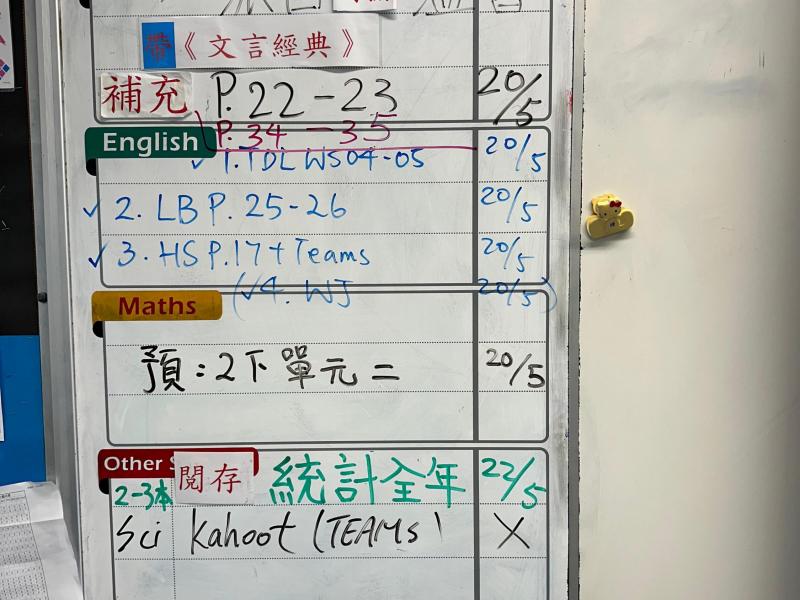 帶《文言經典》
補充 P.22-23 20/5
P.34-35
English
✓ 1. TDL WS04-05 20/5
✓ 2. LB P. 25-26 20/5
✓ 3. HS P.17 + Teams 20/5
(✓4. WJ 20/5)
Maths
預:2下單元二 20/5
Other S
2-3本 閱存 統計全年 22/5
Sci Kahoot (TEAMS) X